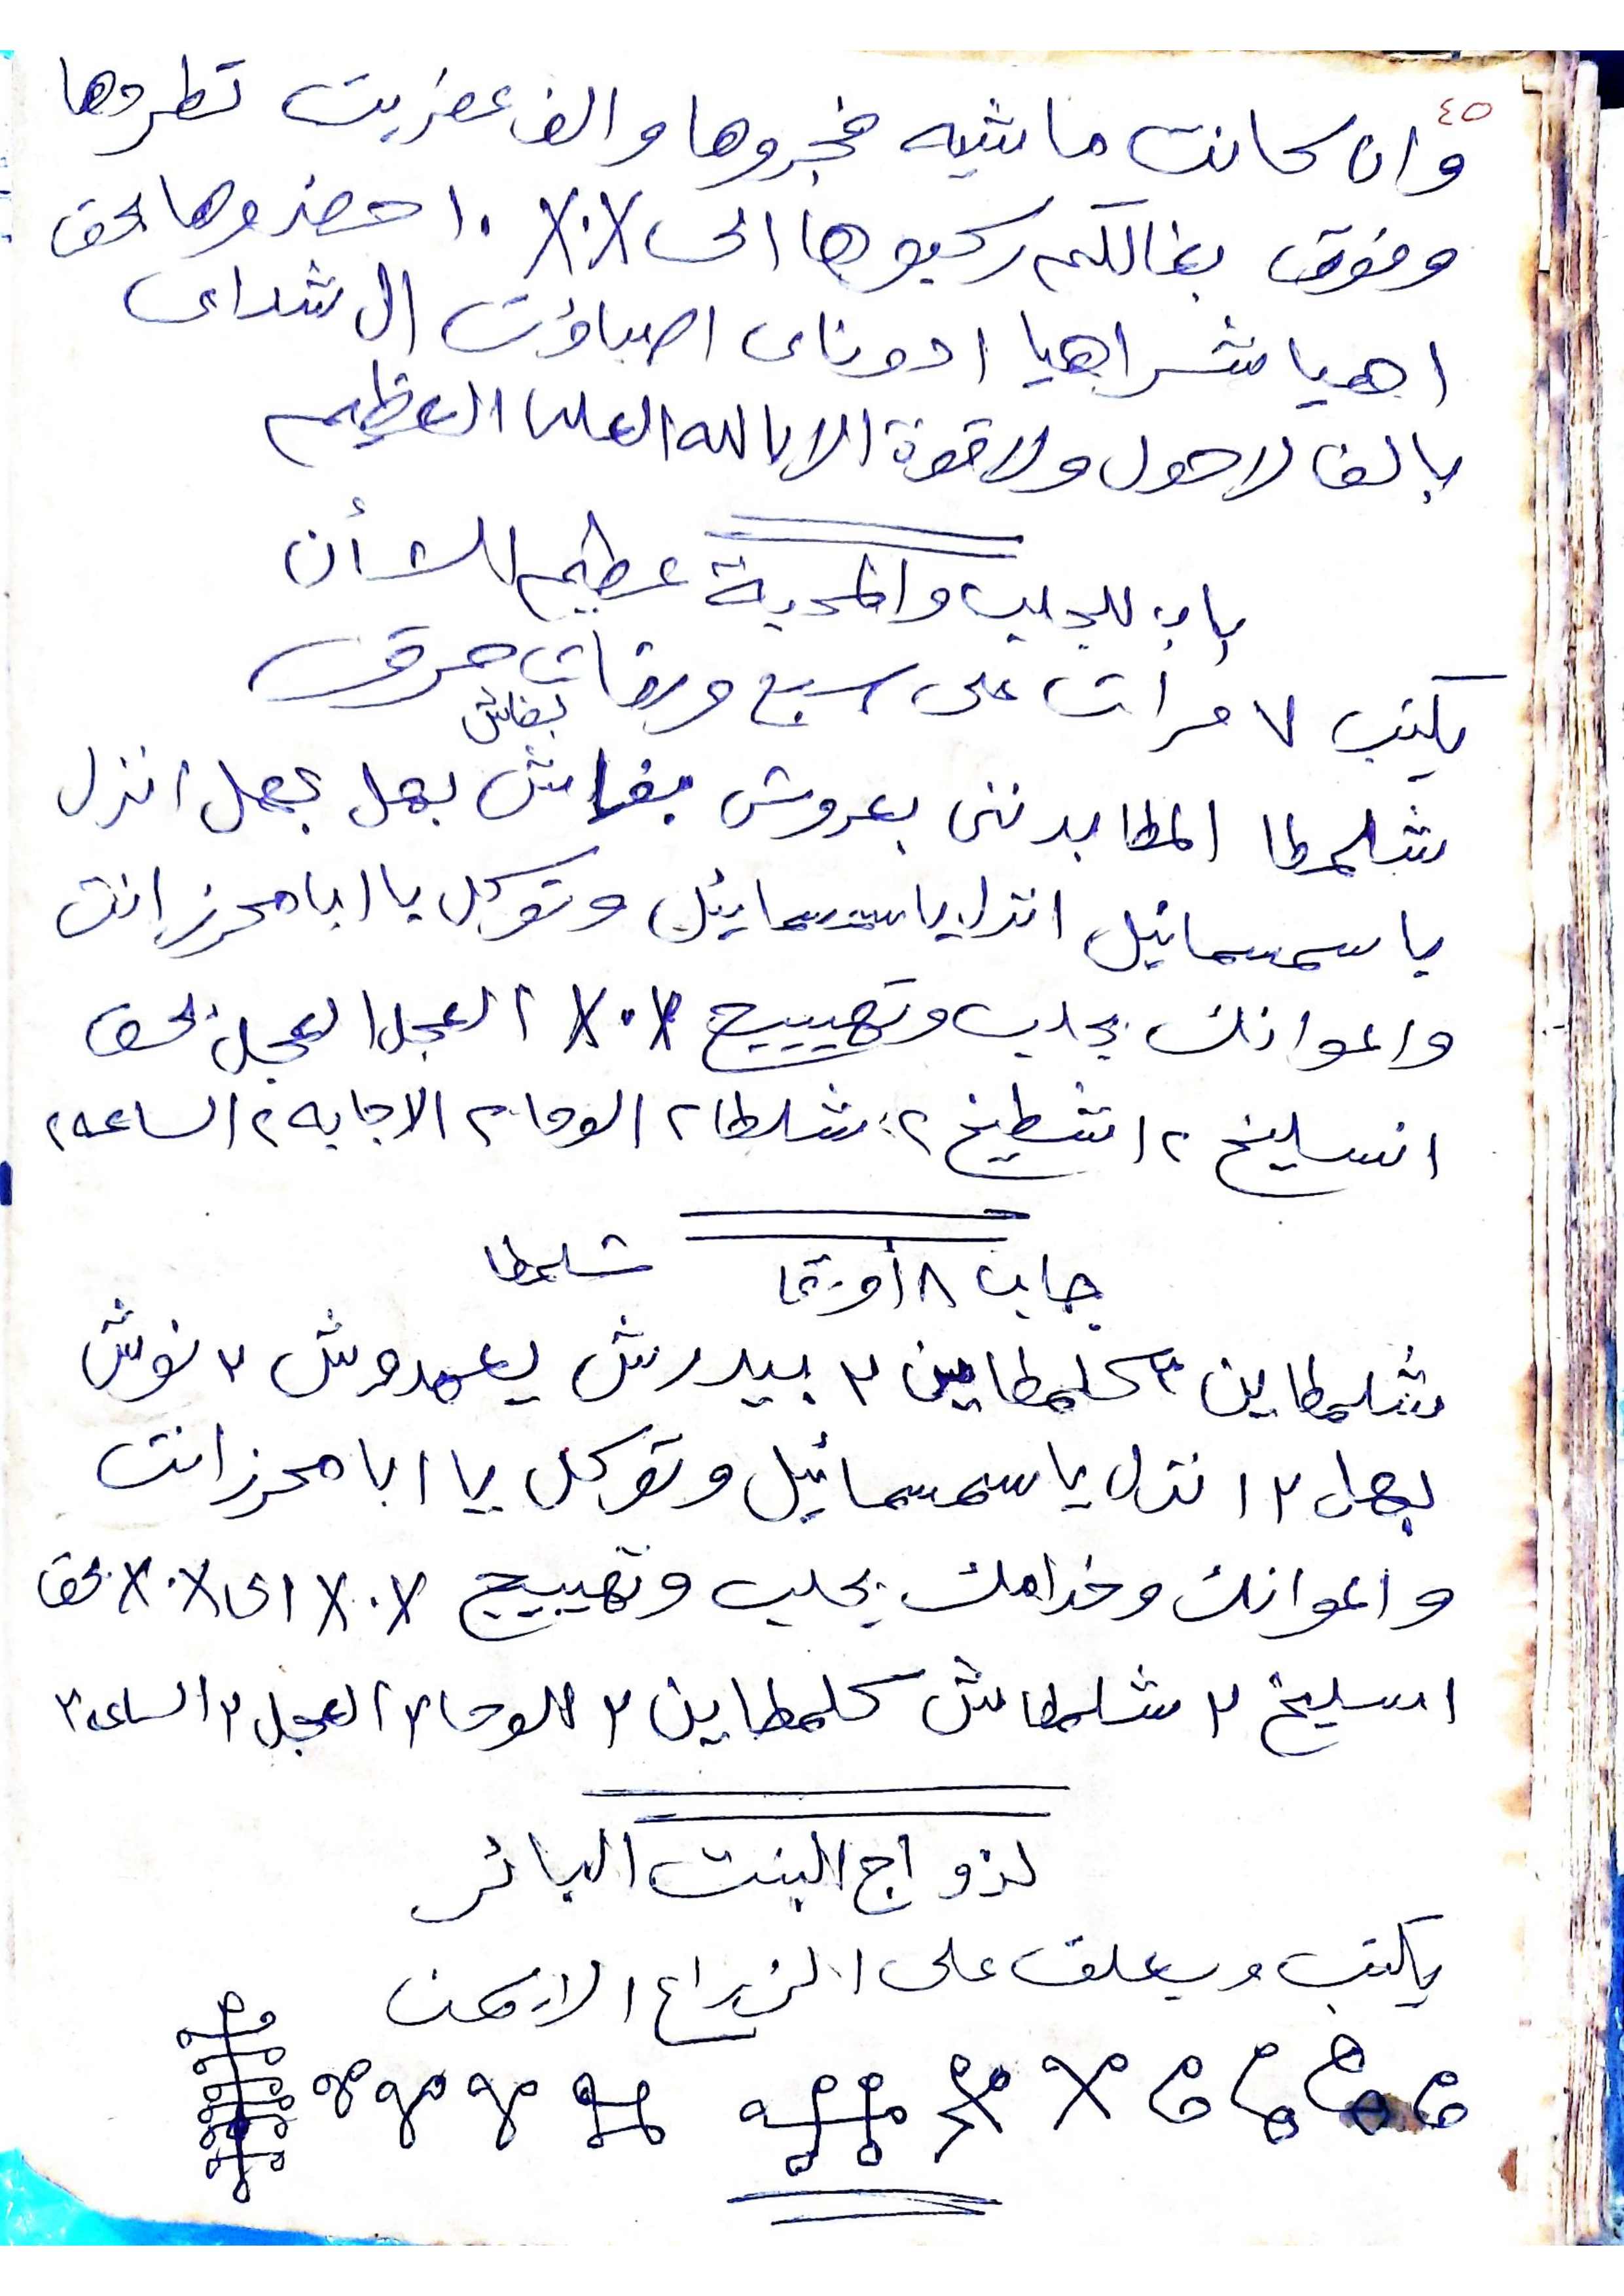 ٤٥
وان كانت ماشيه فجروها والف عفريت تطروها
وفوق بغالكم ركبوها الى X.X ١٠ حضروها بحق
اهيا شراهيا ادوناى اصباؤت ال شداى
بالف لاحول ولا قوة الا بالله العلى العظيم
باب للجلب والمحبة عظيم الشأن
يكتب ٧ مرات على سبع ورقات حرق
بغاش
شلمطا المطا بدننى بعروش بغاش بهل بهمل انزل
يا سمسمائيل انزل يا سمسمائيل وتوكل يا ابا محرز انت
واعوانك بجلب وتهييج X.X العجل العجل بحق
انسليخ ٢ اشطيخ ٢ شلطا ٢ الوحا ٢ الاجابه ٢ الساعه ٢
جاب ٨ أورقا شلمطا
شلمطاين ٢ كلمطاين ٢ بيدرش يعمدوش ٢ نوش
بهل ٢ انزل يا سمسمائيل وتوكل يا ابا محرز انت
واعوانك وخدامك بجلب وتهييج X.X الى X.X بحق
اسليخ ٢ شلمطاش كلمطاين ٢ الوحا ٢ العجل ٢ الساعه ٢
لزواج البنت البائر
يكتب ويعلق على الزراع الايمن